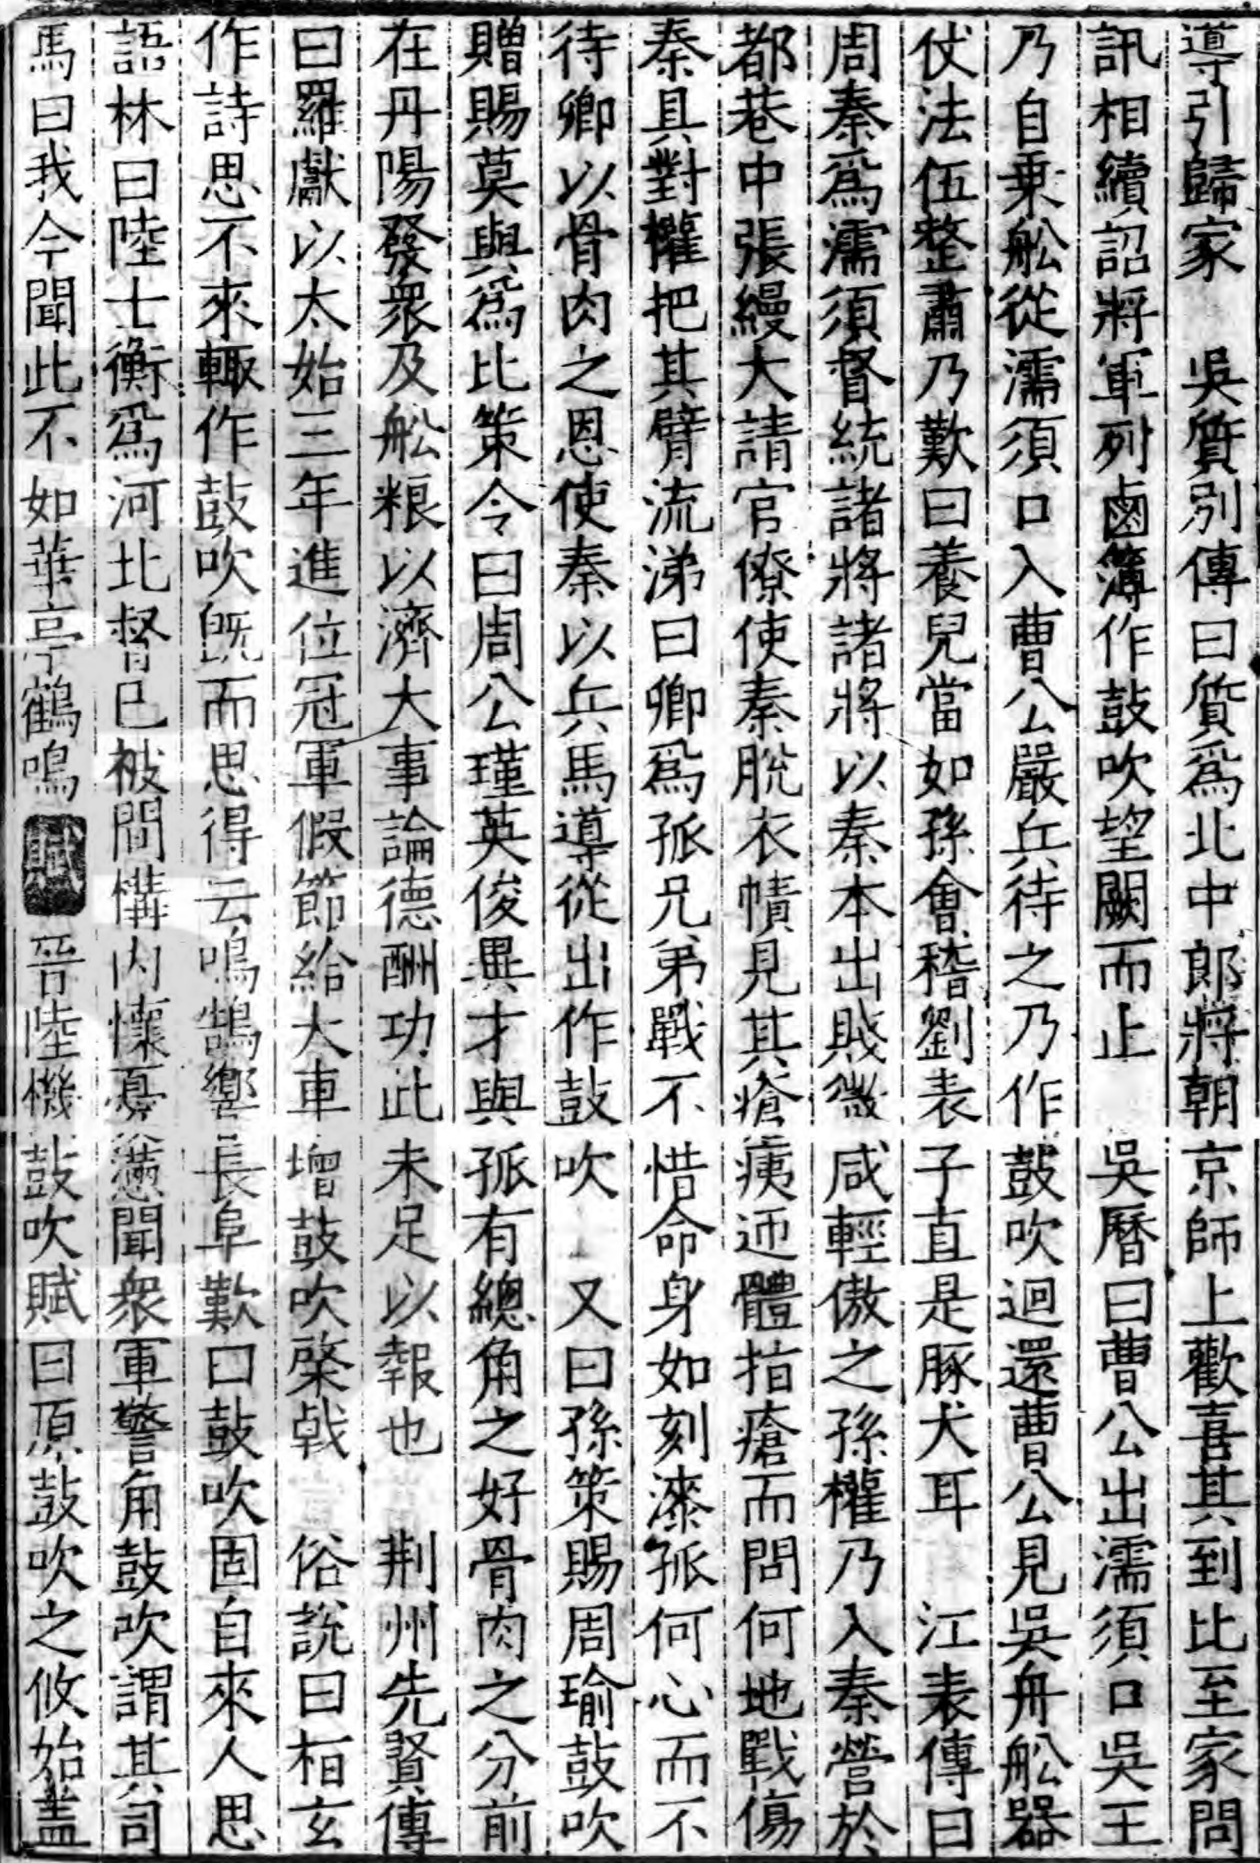 導引歸家　吳質別傳曰質爲北中郎將朝京師上歡喜其到比至家問
訊相續詔將軍列鹵簿作鼓吹望闕而止　吳曆曰曹公出濡須口吳王
乃自乗舩從濡須口入曹公嚴兵待之乃作鼓吹迴還曹公見吳舟舩器
仗法伍整肅乃歎曰養兒當如孫會稽劉表子直是豚犬耳　江表傳曰
周秦爲濡須督統諸將諸將以秦本出賤微咸輕傲之孫權乃入秦營於
都巷中張縵大請官僚使秦脫衣幘見其瘡痍迊體指瘡而問何地戰傷
秦具對權把其臂流涕曰卿爲孤兄弟戰不惜命身如刻漆孤何心而不
待卿以骨肉之恩使秦以兵馬導從出作鼓吹　又曰孫策賜周瑜鼓吹
贈賜莫與爲比策令曰周公瑾英俊異才與孤有總角之好骨肉之分前
在丹陽發衆及舩粮以濟大事論德酬功此未足以報也　荆州先賢傳
曰羅獻以太始三年進位冠軍假節給大車增鼓吹棨戟　俗說曰桓玄
作詩思不來輙作鼓吹旣而思得云鳴鵠響長阜歎曰鼓吹固自來人思
語林曰陸士衡爲河北督已被間構内懷憂懣聞衆軍警角鼓吹謂其司
馬曰我今聞此不如華亭鶴鳴 賦 晉陸機鼓吹賦曰原鼓吹之攸始盖